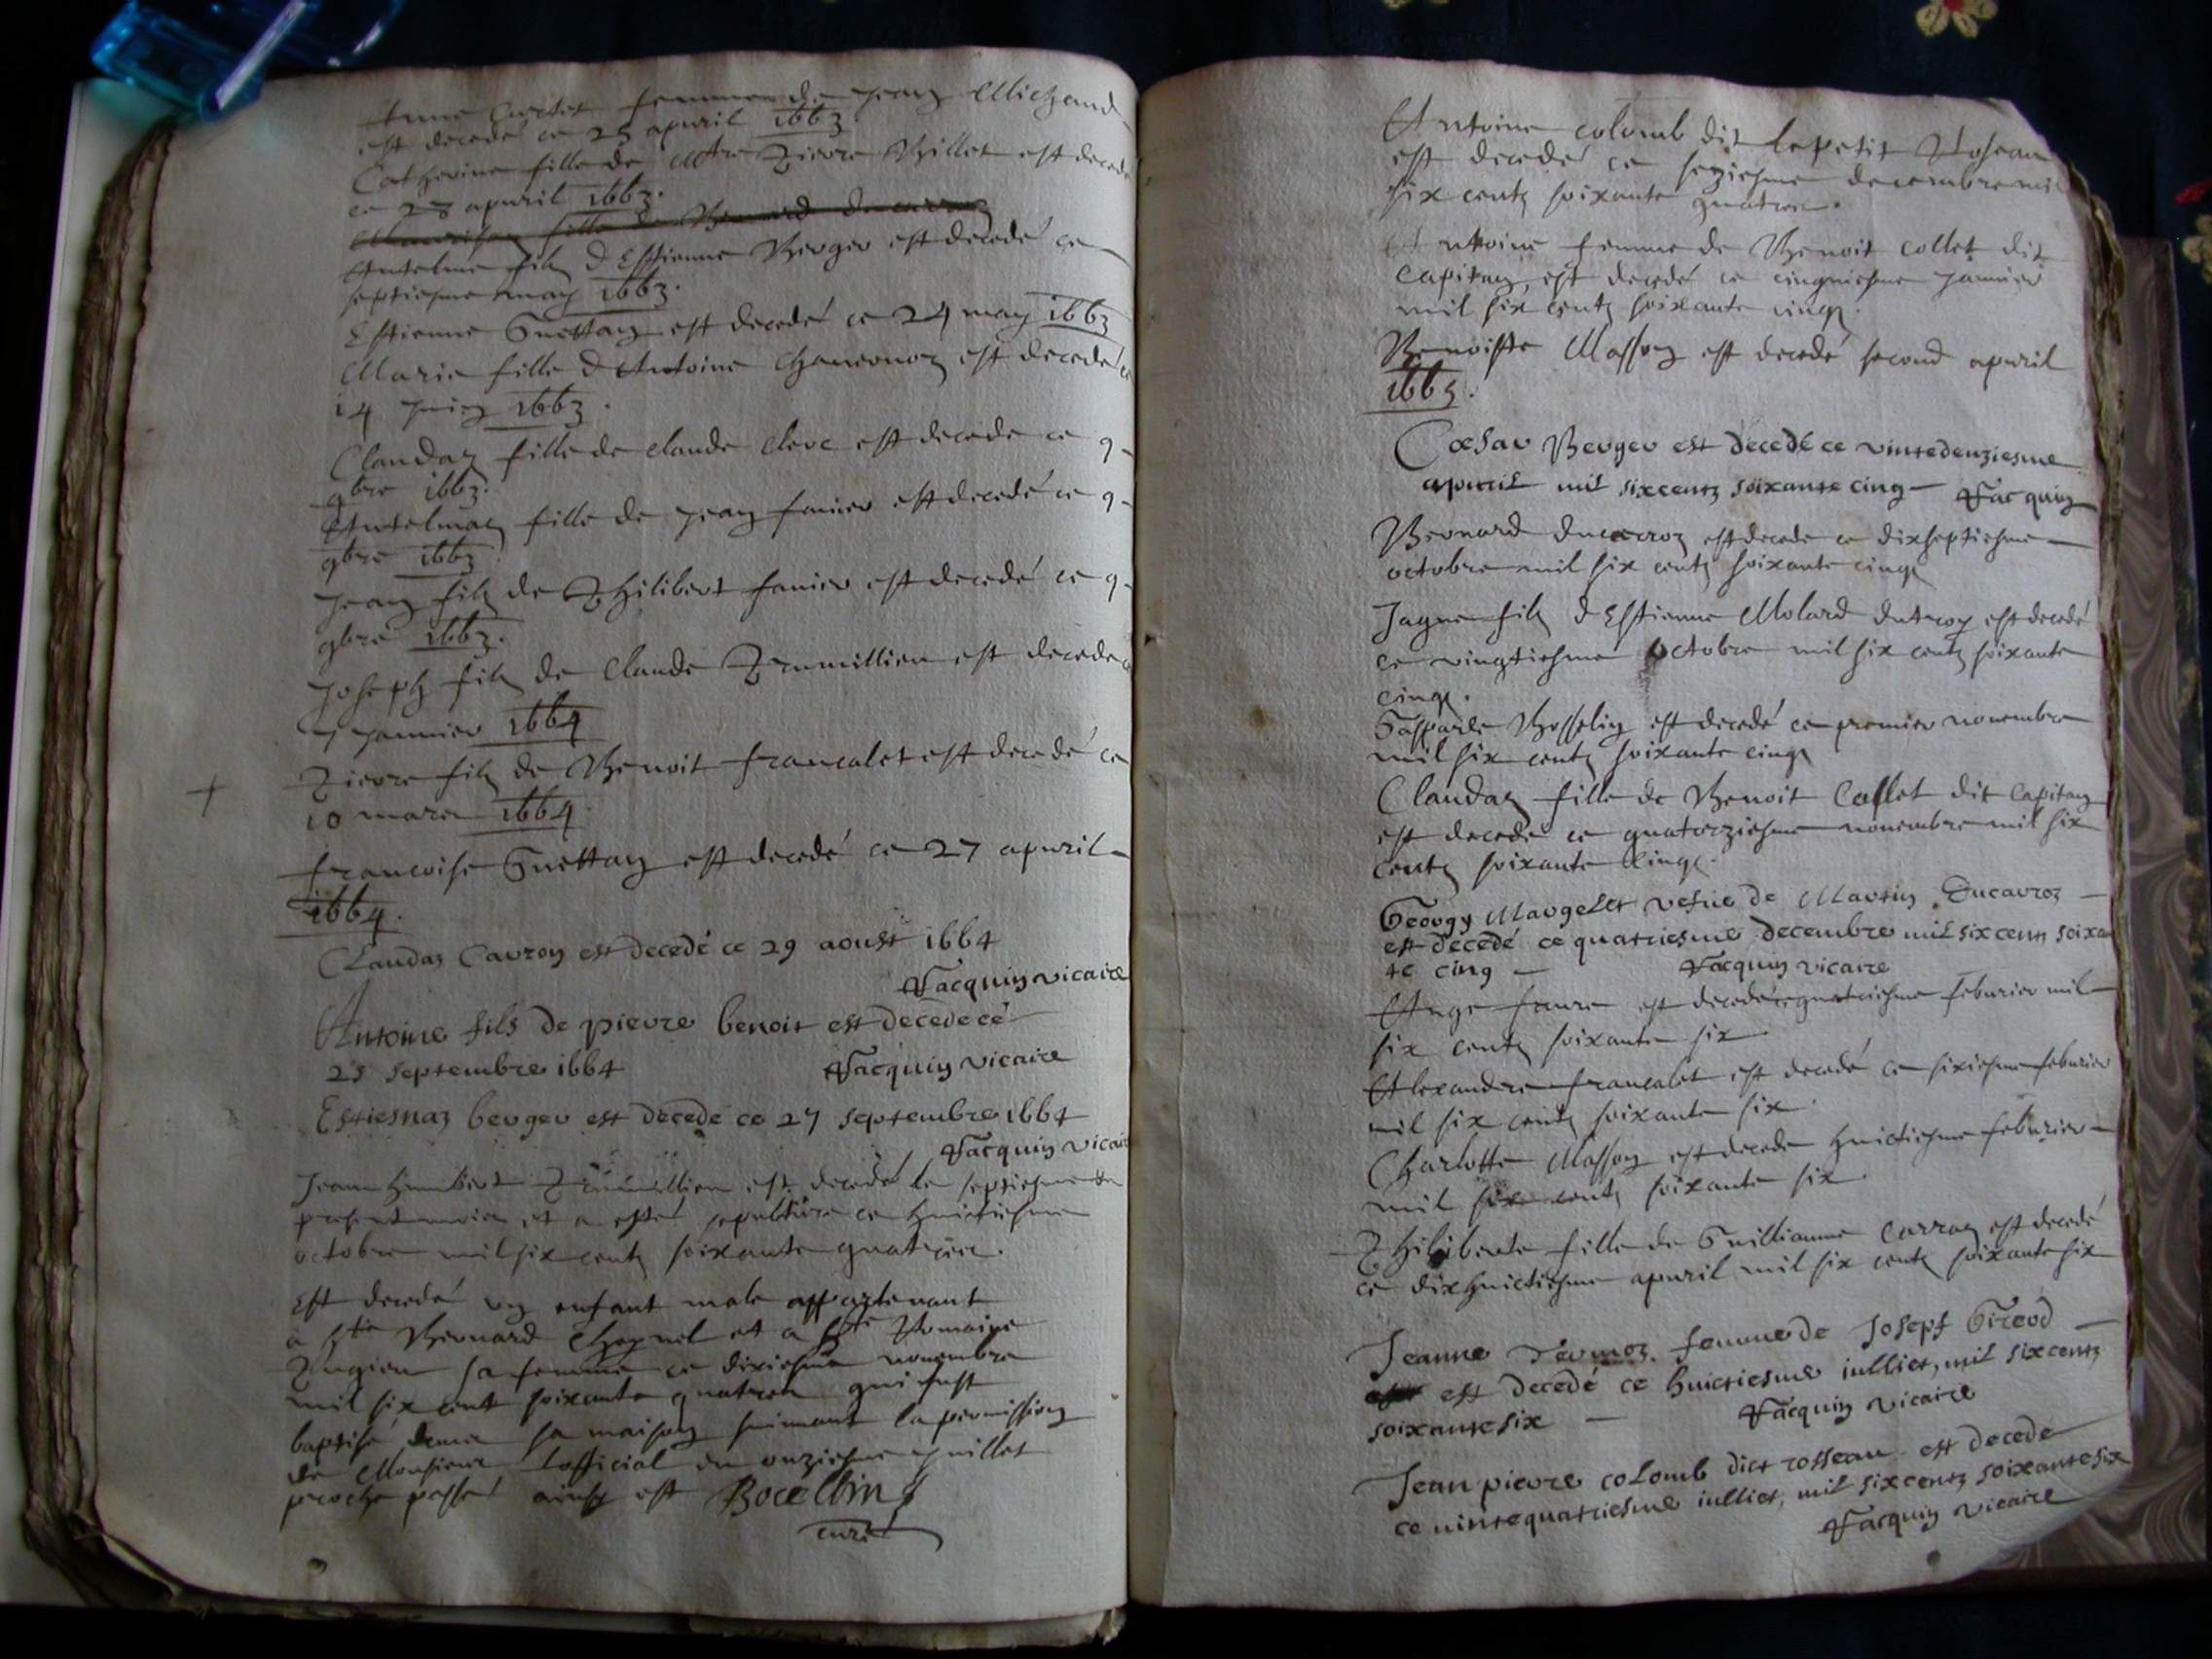 femme de Jean Michaud
est decedé ce 25 apuril 1663
Catherine fille de Mtre Pierre Billet est decedé
ce 28 apuril 1663.
fille de Bernard Ducarroz
Antelme filz d Estienne Berger est decedé ce
septiesme may 1663.
Estienne Guettaz est decedé ce 24 may 1663
Marie fille d Antoine est decedé ce
14 juing 1663.
Claudaz fille de Claude Clerc est decedé ce 9
9bre 1663.
Antelmaz fille de Jean fanier est decedé ce 9
9bre 1663
Jean filz de Philibert fanier est decedé ce 9
9bre 1663.
Joseph filz de Claude Prumillieu est decedé ce
7 januier 1664
Pierre filz de Benoit francalet est decedé ce
10 mars 1664.
francoise Guettaz est decedé ce 27 apuril
1664.
Claudaz Carron est decedé ce 29 aoust 1664
Jacquin vicaire
Antoine fils de pierre benoit est decede ce
25 septembre 1664 Jacquin vicaire
Estiesnaz berger est decede ce 27 septembre 1664
Jacquin vicaire
Jean Humbert Prumillieu est decedé le septiesme du
present mois et a esté sepulturé ce huictiesme
octobre mil six centz soixante quatre.
Est decedé vng enfant male appartenant
a hble Bernard et a hble Romaine
sa femme ce dixiesme nouembre
mil six cent soixante quatre qui fust
baptisé dans sa maison suiuant la permission
de Monsieur Lofficial du onziesme juillet
proche passé ainsy est Bocellin
curé
Antoine colomb dit le petit Roseau
est decedé ce seziesme decembre mil
six centz soixante quatre.
Antoine femme de Benoit Collet dit
Capitan, est decedé ce cinquiesme januier
mil six centz soixante cinq.
Benoiste Masson est decedé second apuril
1665.
Cæsar Berger est decedé ce vintedeuziesme
apuril mil sixcentz soixante cinq — Jacquin
Bernard Ducarroz est decedé ce dixseptiesme
octobre mil six centz soixante cinq
Jaque filz d Estienne Molard est decedé
ce vingtiesme octobre mil six centz soixante
cinq.
Gasparde Bosselin est decedé ce premier nouembre
mil six centz soixante cinq
Claudaz fille de Benoit Collet dit Capitan
est decedé ce quatorziesme nouembre mil six
centz soixante cinq.
Georgy Margelet vefue de Martin Ducarroz —
est decedé ce quatriesme decembre mil six cens soixan
te cinq — Jacquin vicaire
Ange faure est decedé ce quatriesme feburier mil
six centz soixante six
Alexandre francalet est decedé ce sixiesme feburier
mil six centz soixante six.
Charlotte Masson est decedé huictiesme feburier
mil six centz soixante six.
Philiberte fille de Guilliaume Carraz est decedé
ce dixhuictiesme apuril mil six centz soixante six
Jeanne Dermoz femme de Joseph Girod —
est decedé ce huictiesme iulliet, mil sixcentz
soixante six — Jacquin vicaire
Jean pierre colomb dict rosseau est decede
ce vintequatriesme iulliet, mil sixcentz soixantesix
Jacquin vicaire